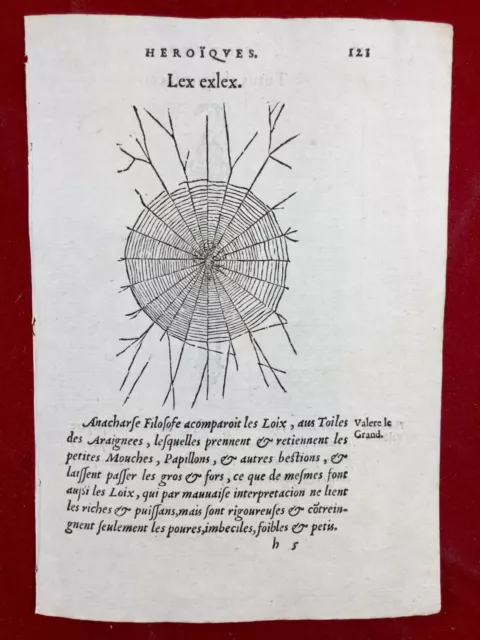 HEROÏQVES. 121
Lex exlex.
Anacharse Filosofe acomparoit les Loix, aus Toiles
des Araignees, lesquelles prennent & retiennent les
petites Mouches, Papillons, & autres bestions, &
laissent passer les gros & fors, ce que de mesmes font
aussi les Loix, qui par mauuaise interpretacion ne lient
les riches & puissans, mais sont rigoureuses & cõtrein-
gnent seulement les poures, imbeciles, foibles & petis.
Valere le
Grand.
h 5